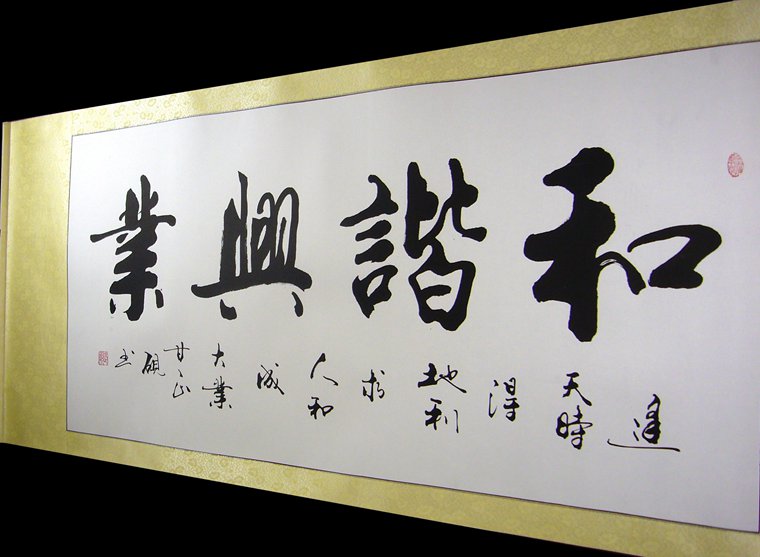 和諧興業
逢天時得地利求人和成大業 硯书